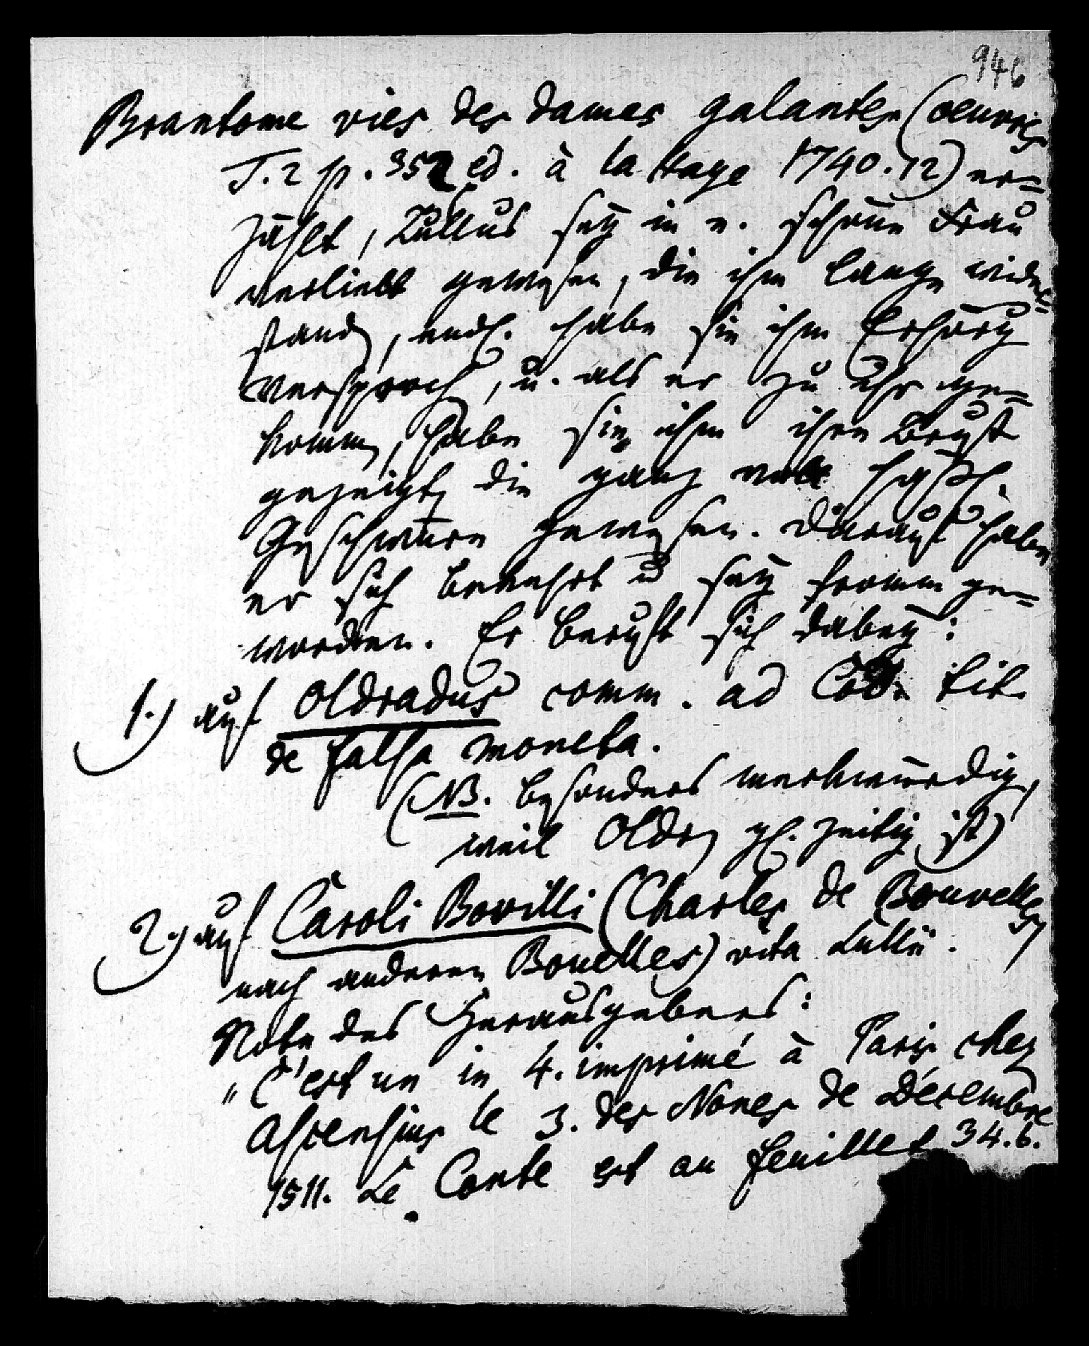 946
Brantome vies des dames galantes (oeuvres
T. 2 p. 352 ed. à la Haye 1740. 12) er=
zählt, Lullus sey in e. schöne Frau
verliebt gewesen, die ihm lange wider=
stand, endl. habe sie ihm Erhörg
versproch, u. als er zu ihr ge=
komm, habe sie ihm ihre Brust
gezeigt, die ganz voll häßl.
Geschwüre gewesen. Darauf habe
er sich bekehrt u sey fromm ge=
worden. Er beruft sich dabey:
1.) auf Oldradus comm. ad Cod. tit.
de falsa moneta.
(NB. besonders merkwürdig,
weil Oldr gl. zeitig ist)
2.) auf Caroli Bovilli (Charles de Bouvelles
nach anderen Bouelles) vita Lullii.
Note des Herausgebers:
"C'est un in 4. imprimé à Paris chez
Ascensius le 3. des Nones de Décembre
1511. Le Conte est au feuillet 34. b.